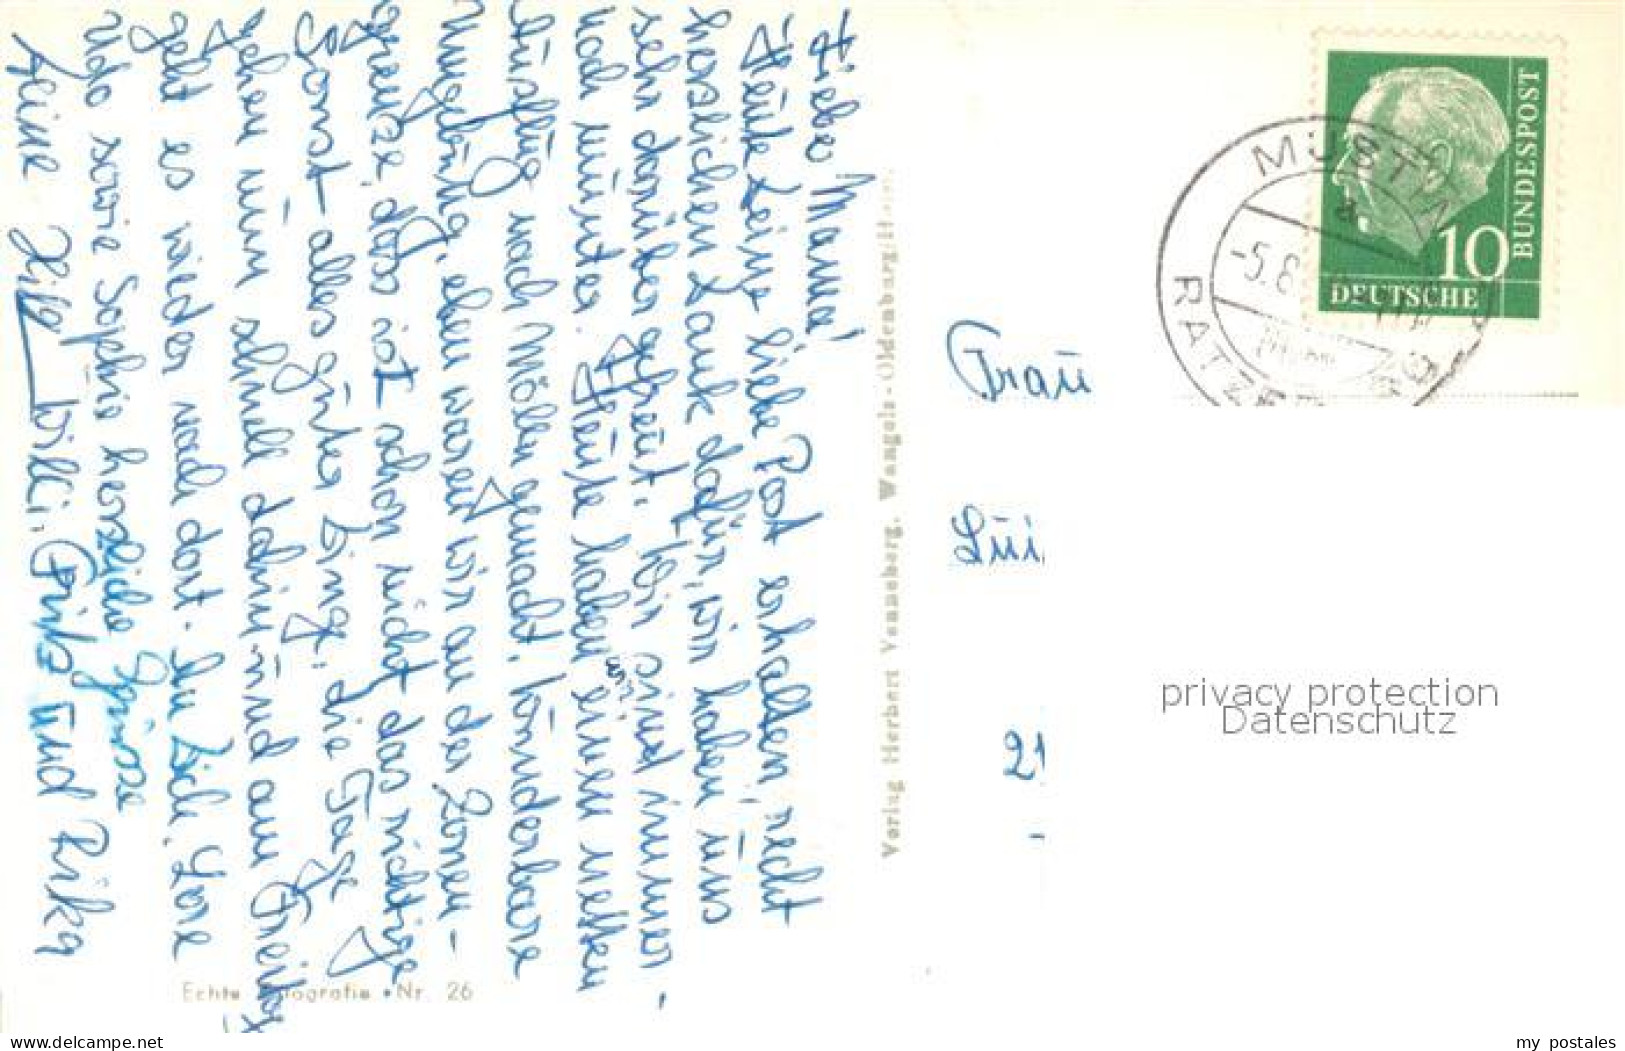 Liebe Mama!
Heute Deine liebe Post erhalten, recht
herzlichen Dank dafür, wir haben uns
sehr darüber gefreut. Wir sind immer
noch munter. Heute haben wir einen netten
Ausflug nach Mölln gemacht, wunderbare
Umgebung, eben waren wir an der Zonen-
grenze, das ist schon nicht das richtige
Sonst alles guter Dinge, die Tage
gehen nun schnell dahin und am Freitag
geht es wieder nach dort. Dir, Lore
Udo sowie Sophie herzliche Grüsse
Deine Willi, Fritz und Rika
Verlag Herbert Vannberg, Wangels-Oldenburg/
Echte Fotografie • Nr. 26
DEUTSCHE
BUNDESPOST
10
MUSTIN
a
-5.8
RATZEB
Frau
privacy protection
Datenschutz
www.delcampe.net
my_postales